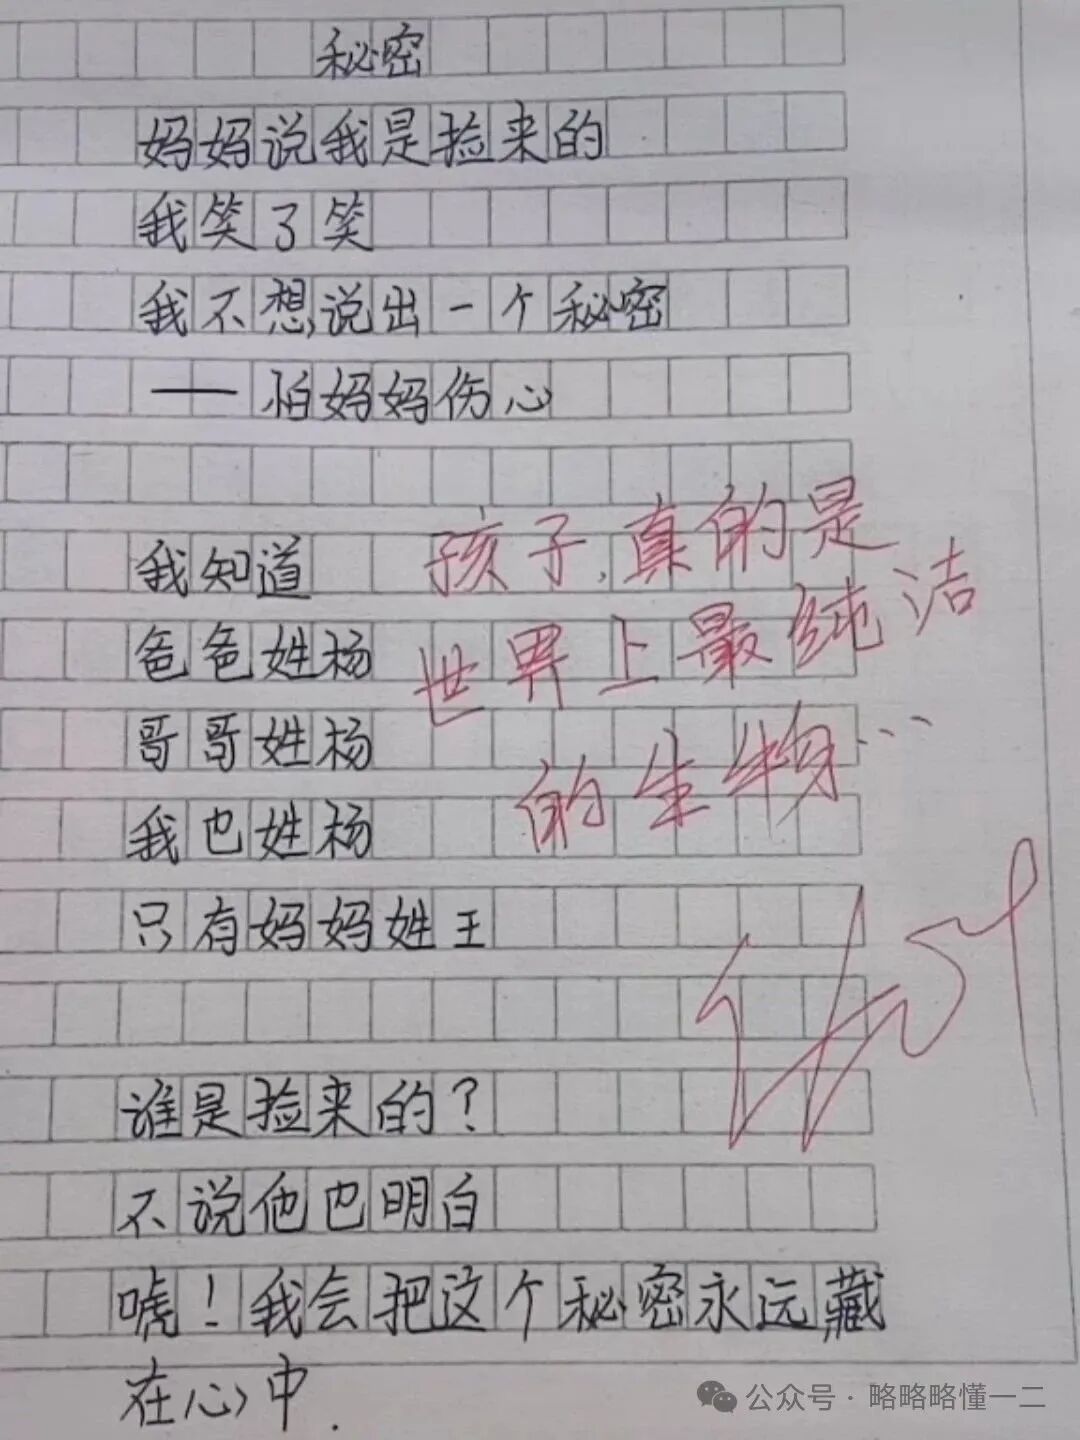 秘密
妈妈说我是捡来的
我笑了笑
我不想说出一个秘密
——怕妈妈伤心
我知道
爸爸姓杨
哥哥姓杨
我也姓杨
只有妈妈姓王
谁是捡来的?
不说他也明白
唬!我会把这个秘密永远藏
在心中.
孩子,真的是
世界上最纯洁
的生物...
公众号·略略略懂一二